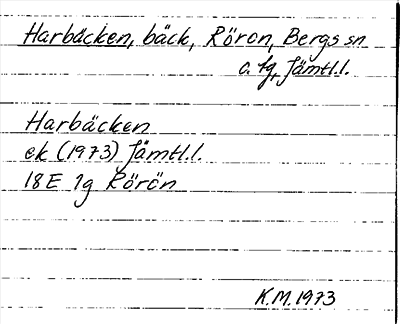 Harbäcken, bäck, Röron, Bergs sn
o. fg, Jämtl.l.
Harbäcken
ek (1973) Jämtl.l.
18E 1g Rörön
K.M. 1973